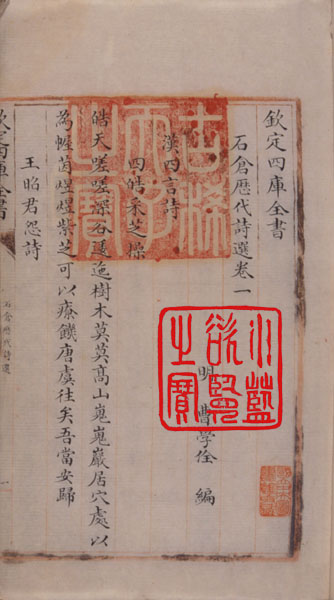 欽定四庫全書
石倉歷代詩選卷一
明 曹學佺 編
漢四言詩
四皓采芝操
皓天嗟嗟深谷逶迤樹木莫莫高山嵬嵬巖居穴處以
為幄茵煜煜紫芝可以療饑唐虞往矣吾當安歸
王昭君怨詩
欽定四庫全書
石倉歷代詩選
古稀天子之寶
之寶